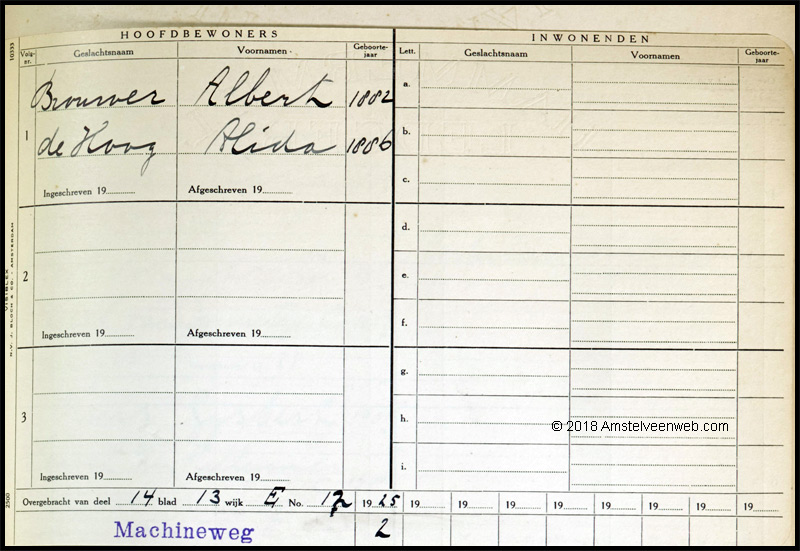 HOOFDBEWONERS INWONENDEN
Volg-nr. Geslachtsnaam Voornamen Geboorte-jaar Lett. Geslachtsnaam Voornamen Geboorte-jaar
10335
Brouwer Albert 1882 a.
1 de Hoog Alida 1886 b.
Ingeschreven 19 Afgeschreven 19 c.
d.
2 e.
Ingeschreven 19 Afgeschreven 19 f.
g.
3 h.
© 2018 Amstelveenweb.com
Ingeschreven 19 Afgeschreven 19 i.
2500
Overgebracht van deel 14 blad 13 wijk E No. 1925 19 19 19 19 19 19 19 19
Machineweg 2